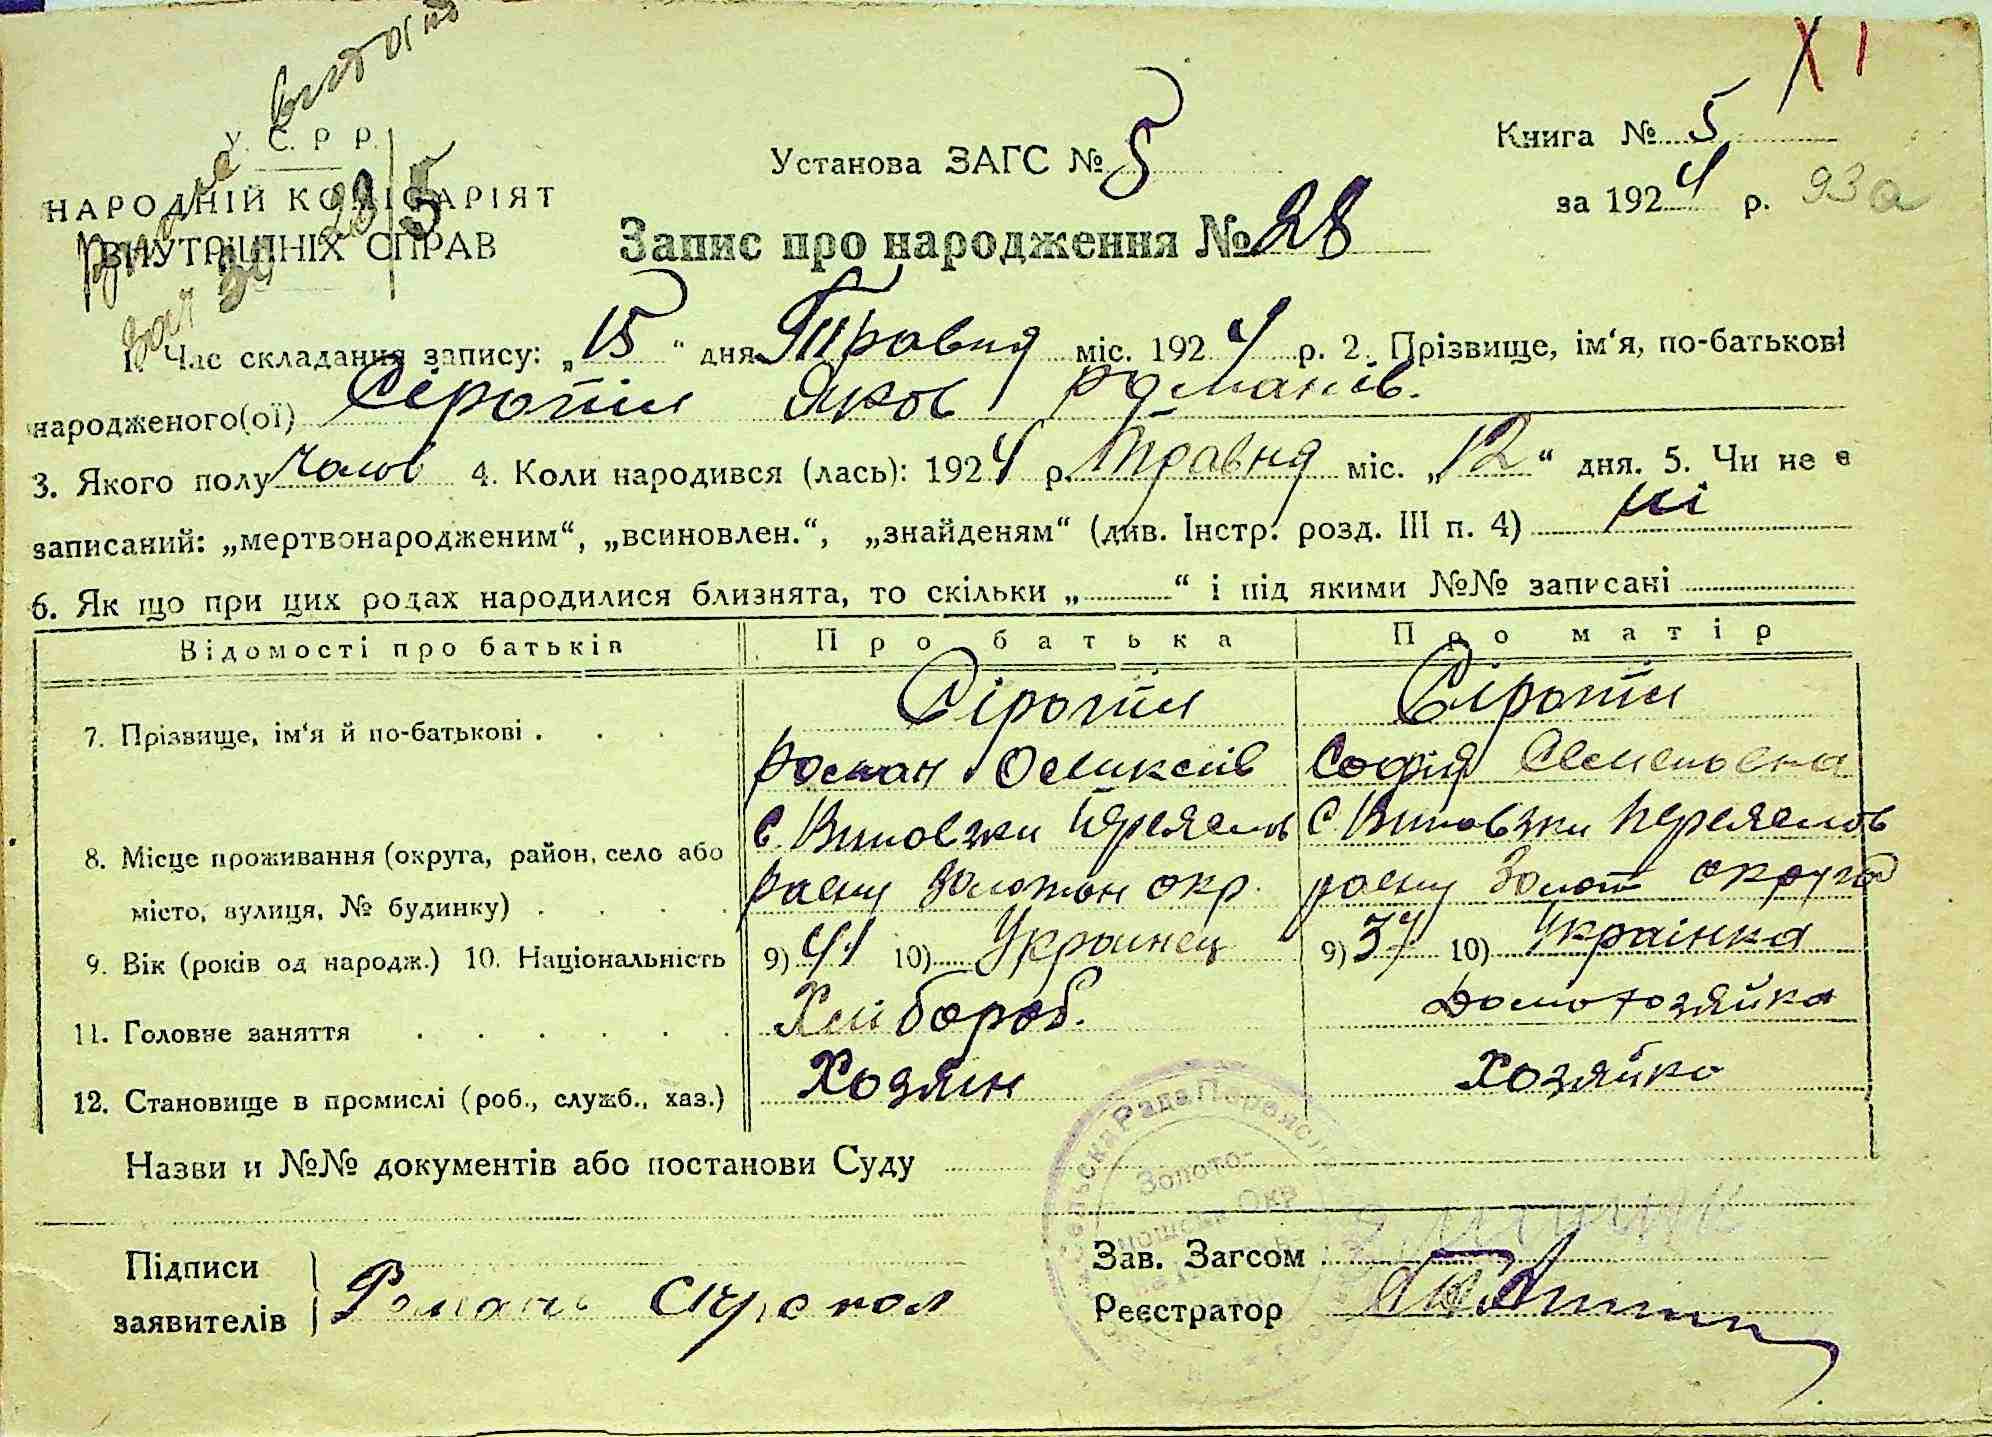 У. С. Р. Р.
НАРОДНІЙ КОМІСАРІЯТ
ВНУТРІШНІХ СПРАВ
28/5
XI
Установа ЗАГС № 5
Книга № 5
за 1924 р. 93а
Запис про народження № 28
1. Час складання запису: „15“ дня Травня міс. 1924 р. 2. Прізвище, ім‘я, по-батькові
народженого(ої) Сіротін Яков Романів.
3. Якого полу Чолов 4. Коли народився (лась): 1924 р. Травня міс. „12“ дня. 5. Чи не є
записаний: „мертвонародженим“, „всиновлен.“, „знайденям“ (див. Інстр. розд. III п. 4) ні
6. Як що при цих родах народилися близнята, то скільки „ “ і під якими №№ записані
Відомості про батьків Про батька Про матір
7. Прізвище, ім‘я й по-батькові Сіротін Сіротін
Роман Софія Семеновна
8. Місце проживання (округа, район, село або с. Переяслов с. Переяслов
місто, вулиця, № будинку) раену Золотон окр. раену Золот округа
9. Вік (років од народж.) 10. Національність 9) 41 10) Украинец 9) 37 10) Українка
11. Головне заняття Хлібороб. Домохозяйка
12. Становище в промислі (роб., служб., хаз.) Хозяін Хозяйка
Назви и №№ документів або постанови Суду
Сільська Рада Переясл
Золото-
ношськ. Окр
Підписи
заявителів Роман
Зав. Загсом
Реєстратор